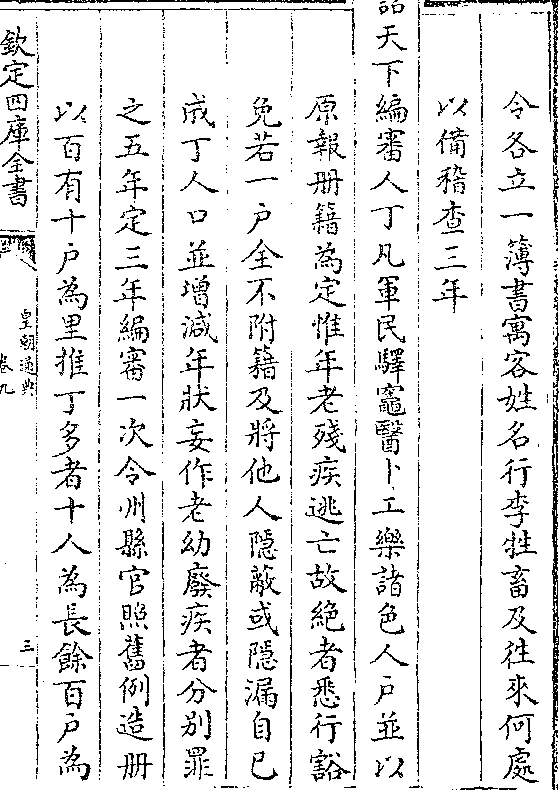 令各立一簿書寓客姓名行李牲畜及往來何處
以備稽查三年
詔天下編審人丁凡軍民驛竈醫卜工樂諸色人户並以
原報册籍為定惟年老殘疾逃亡故絶者悉行豁
免若一户全不附籍及將他人隠蔽或隠漏自己
成丁人口並增減年狀妄作老幼廢疾者分别罪
之五年定三年編審一次令州縣官照舊例造册
以百有十户為里推丁多者十人為長餘百户為
欽定四庫全書
皇朝通典
卷九
三